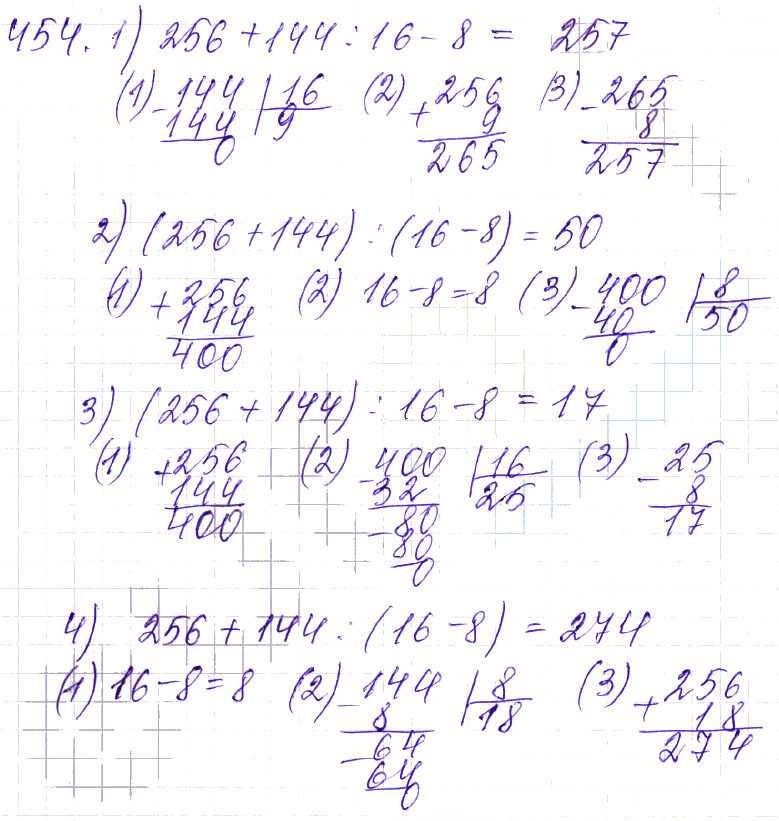 454. 1) 256 + 144 : 16 - 8 = 257
(1) - 144 | 16 (2) + 256 (3) - 265
144 9 9 8
0 265 257
2) (256 + 144) : (16 - 8) = 50
(1) + 256 (2) 16 - 8 = 8 (3) - 400 | 8
144 40 50
400 0
3) (256 + 144) : 16 - 8 = 17
(1) + 256 (2) - 400 | 16 (3) - 25
144 32 25 8
400 - 80 17
80
0
4) 256 + 144 : (16 - 8) = 274
(1) 16 - 8 = 8 (2) - 144 | 8 (3) + 256
8 18 18
- 64 274
64
0